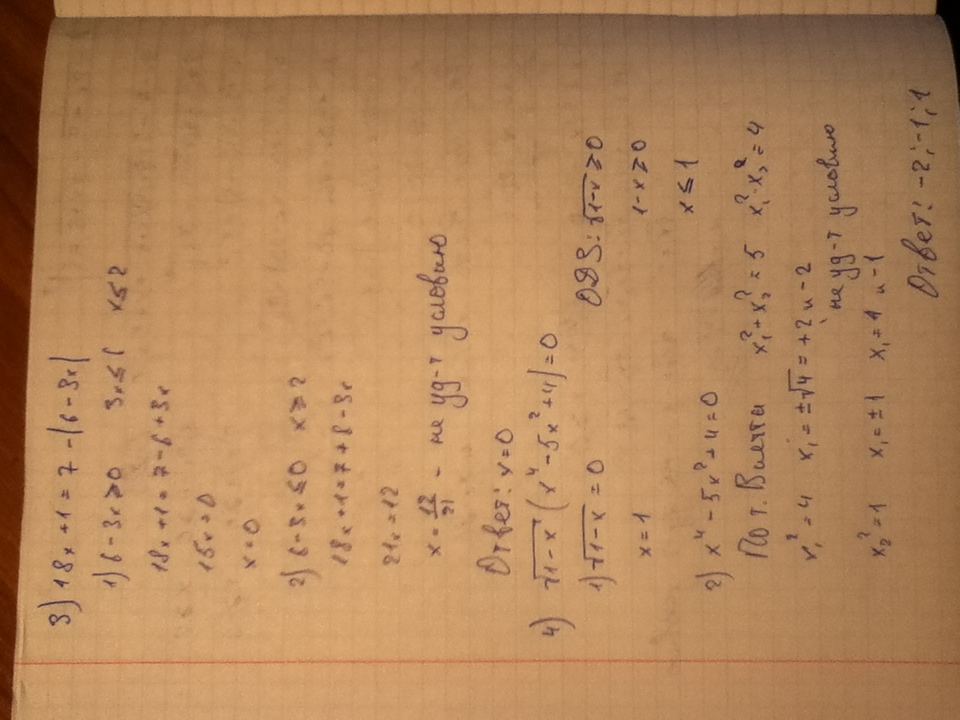 3) 18x + 1 = 7 - |6 - 3x|
1) 6 - 3x ≥ 0 3x ≤ 6 x ≤ 2
18x + 1 = 7 - 6 + 3x
15x = 0
x = 0
2) 6 - 3x ≤ 0 x ≥ 2
18x + 1 = 7 + 6 - 3x
21x = 12
x = 12/21 - не уд-т условию
Ответ: x = 0
4) √1-x (x⁴ - 5x² + 4) = 0
1) √1-x = 0 ОДЗ: √1-x ≥ 0
x = 1 1 - x ≥ 0
x ≤ 1
2) x⁴ - 5x² + 4 = 0
По т. Виета x₁² + x₂² = 5 x₁² · x₂² = 4
x₁² = 4 x₁ = ±√4 = +2 и -2
не уд-т условию
x₂² = 1 x₁ = ±1 x₁ = 1 и -1
Ответ: -2; -1; 1